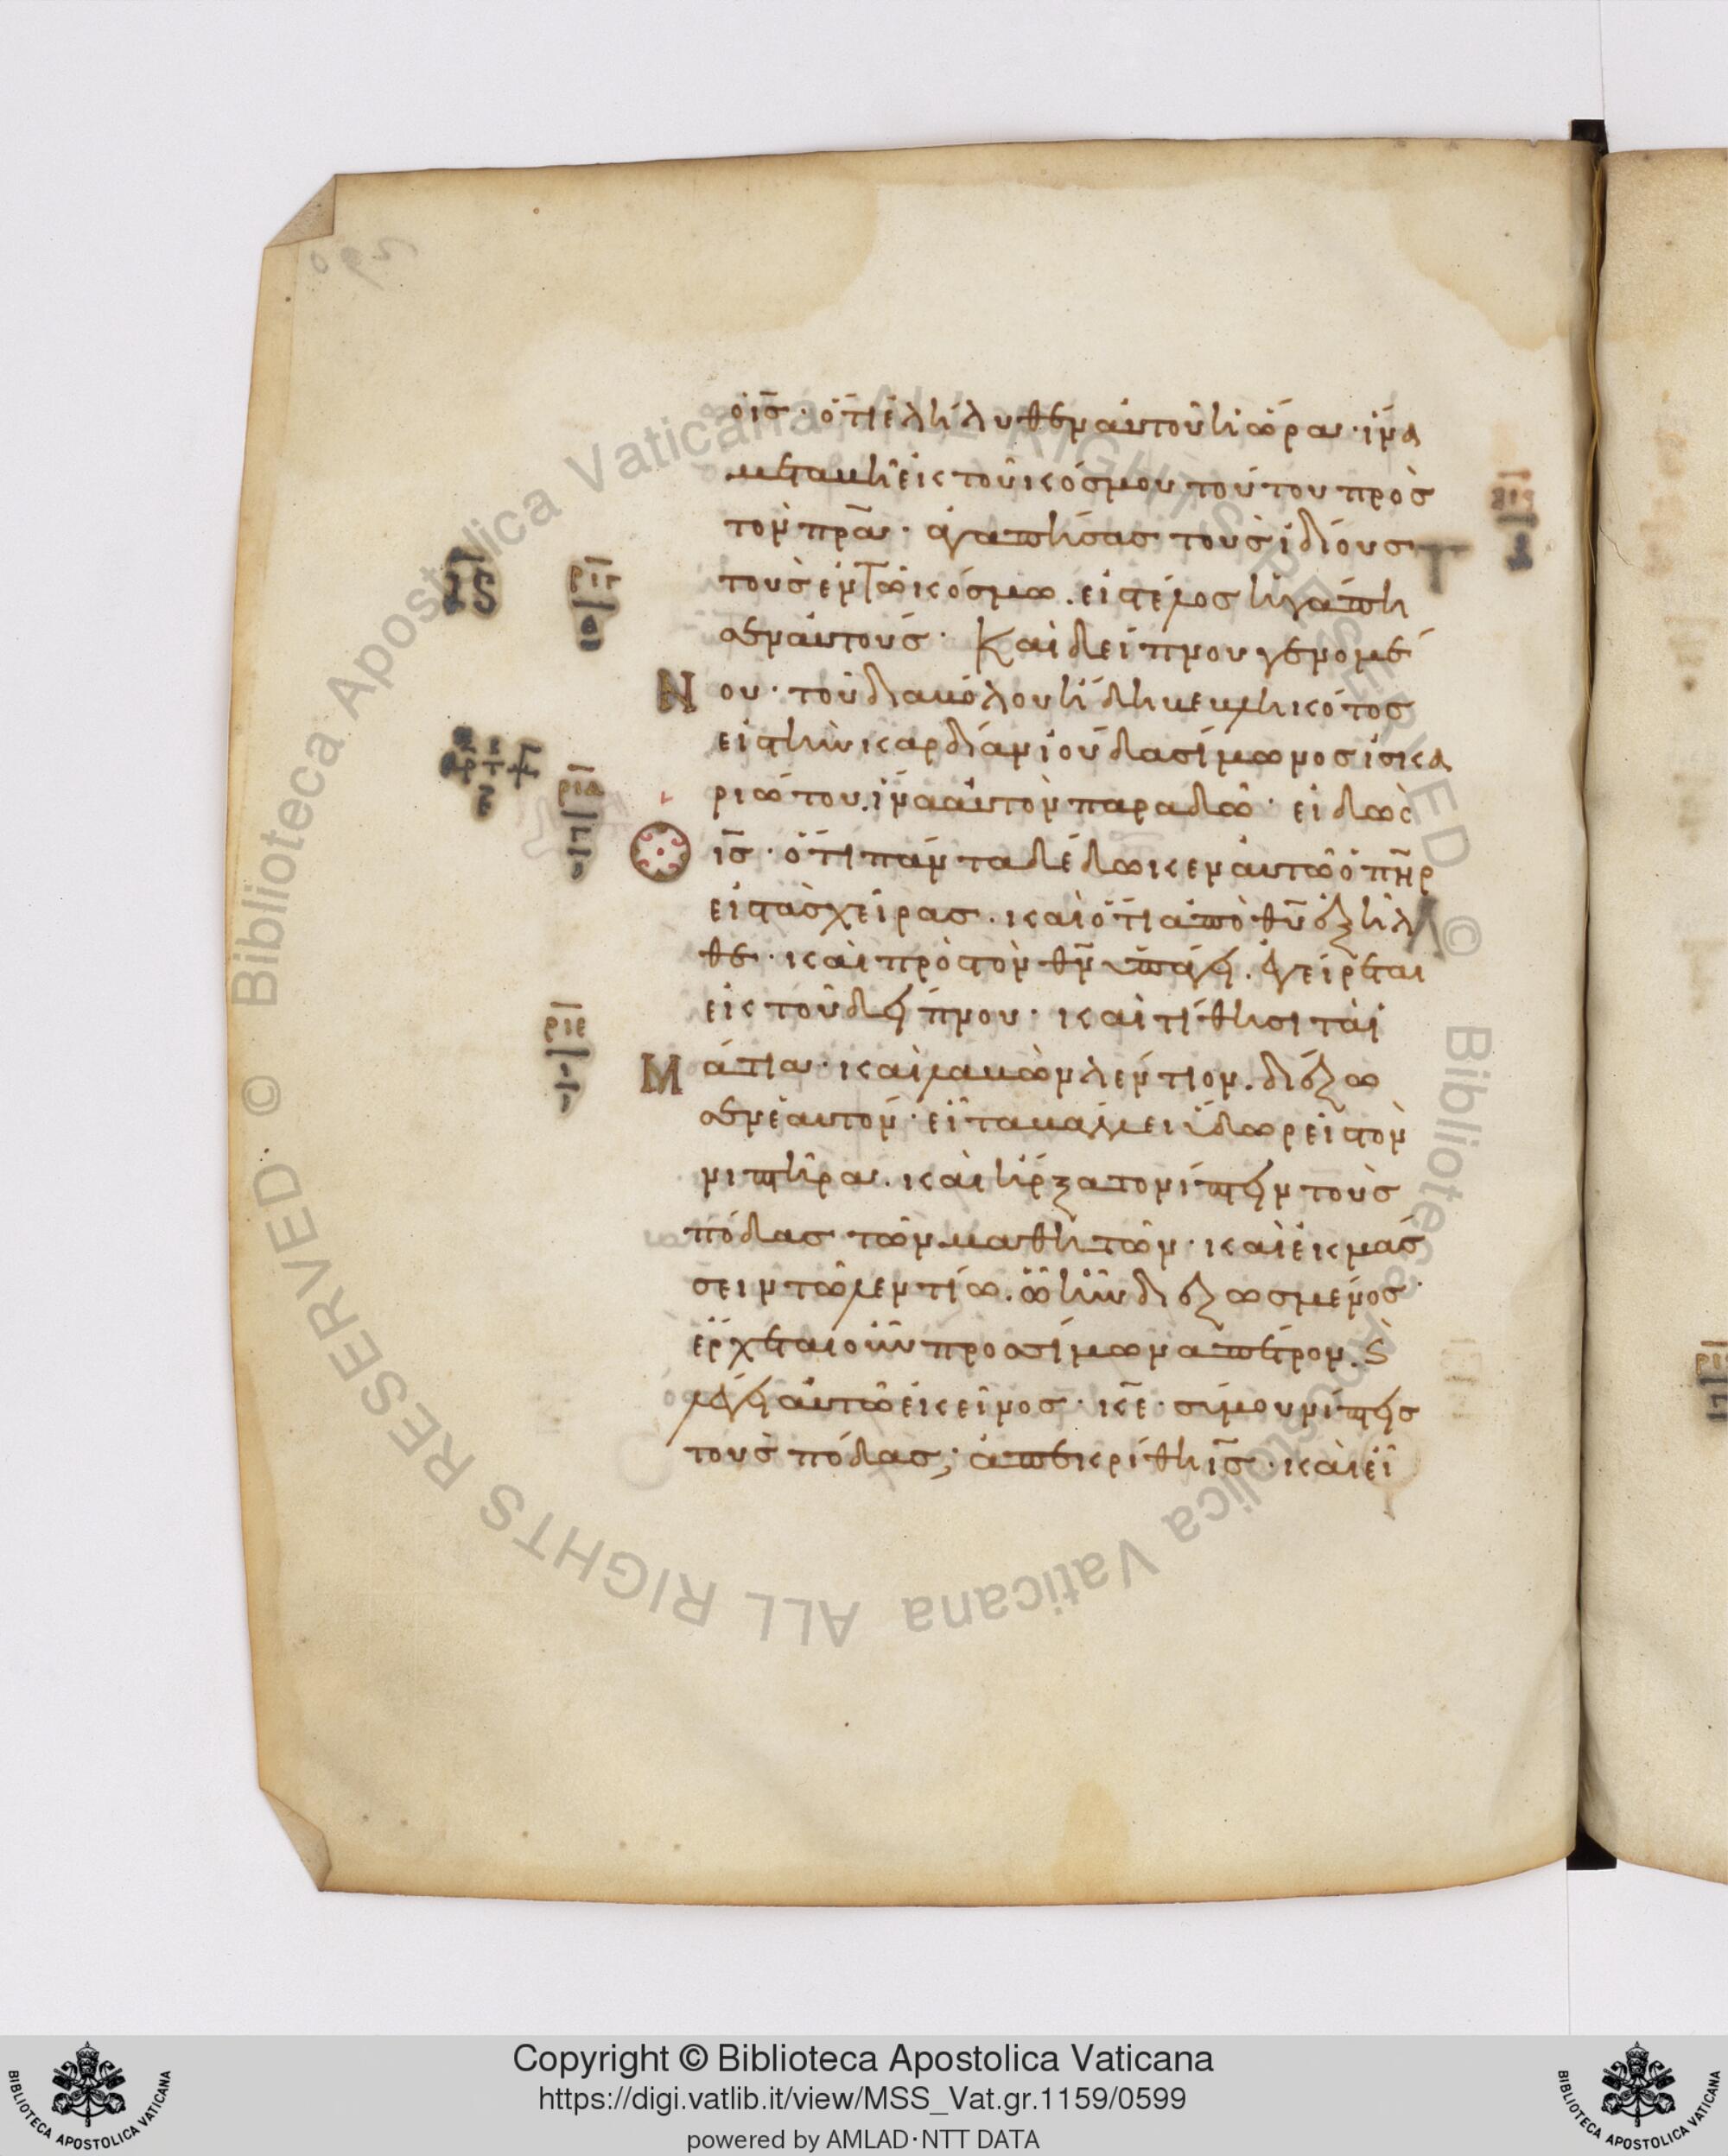 ὁ ἰ̅σ̅· ὅτι ἐλήλυθεν αὐτοῦ ἡ ὥρα· ἵνα
μεταβῆ ἐκ τοῦ κόσμου τούτου πρὸς
τὸν π̅ρ̅α̅· ἀγαπήσας τοὺς ἰδίους
τοὺς ἐν τῶ κόσμω. εἰς τέλος ἠγάπη
σεν αὐτούς· Καὶ δείπνου γενομέ
Νου· τοῦ διαβόλου ἤδη βεβληκότος
εἰς τὴν καρδίαν ἰούδα σίμωνος ἰσκα
ριώτου. ἵνα αὐτὸν παραδῶ· εἰδὼς
Ὁ ἰ̅σ̅· ὅτι πάντα δέδωκεν αὐτῶ ὁ π̅η̅ρ̅
εἰς τὰς χεῖρας. καὶ ὅτι ἀπὸ θ̅υ̅ ἐξῆλ
θε· καὶ πρὸς τὸν θ̅ν̅ ὑπάγει. ἐγείρεται
ἐκ τοῦ δείπνου· καὶ τίθησι τὰ ἱ
Μάτια· καὶ λαβὼν λέντιον. διέζω
σεν ἑαυτόν· εἶτα βάλλει ὕδωρ εἰς τὸν
νιπτῆρα. καὶ ἤρξατο νίπτειν τοὺς
πόδας τῶν μαθητῶν· καὶ ἐκμάσ
σειν τῶ λεντίω. ὧ ἦν διεζωσμένος·
ἔρχεται οὖν πρὸς σίμωνα πέτρον. Ϛ̀
λέγει αὐτῶ ἐκεῖνος· κ̅ε̅· σύ μου νίπτεις
τοὺς πόδας; ἀπεκρίθη ἰ̅σ̅· καὶ εἶ
Copyright © Biblioteca Apostolica Vaticana
https://digi.vatlib.it/view/MSS_Vat.gr.1159/0599
powered by AMLAD·NTT DATA
BIBLIOTECA APOSTOLICA VATICANA
BIBLIOTECA APOSTOLICA VATICANA
© Biblioteca Apostolica Vaticana ALL RIGHTS RESERVED
© Biblioteca Apostolica Vaticana ALL RIGHTS RESERVED